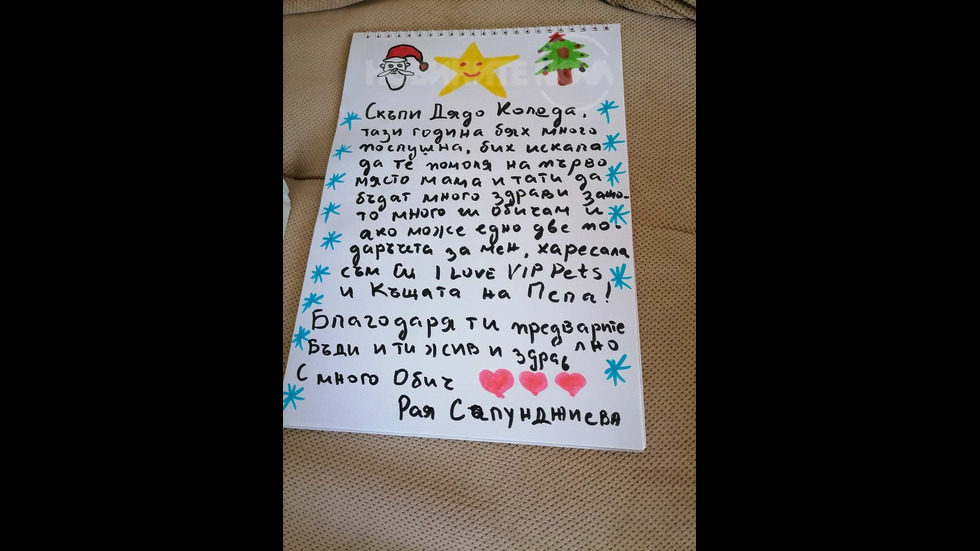 Скъпи Дядо Коледа,
тази година бях много
послушна, бих искала
да те помоля на първо
място мама и тати да
бъдат много здрави защо-
то много ги обичам и
ако може едно две по-
даръчета за мен, харесала
съм си I LOVE VIP Pets
и Къщата на Пепа!
Благодаря ти предварите
лно
Бъди и ти жив и здрав
С много Обич
Рая Сапунджиева